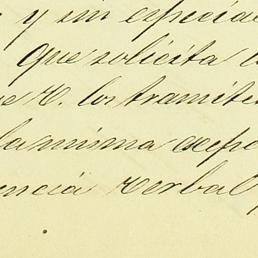 y sin especia
que solicita
e V. los tramite
la misma
encia verbal